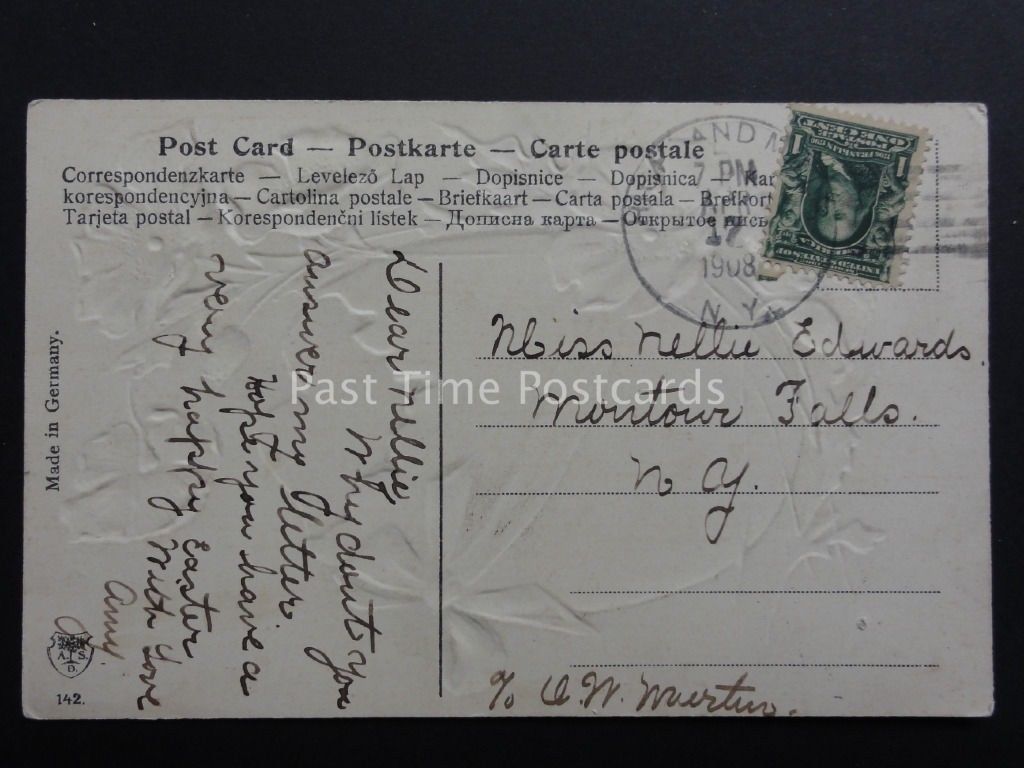 Post Card — Postkarte — Carte postale
Correspondenzkarte — Levelező Lap — Dopisnice — Dopisnica — Kar
korespondencyjna — Cartolina postale — Briefkaart — Carta postala — Brefkort
Tarjeta postal — Korespondenční lístek — Дописна карта — Открытое
7 PM
17
1908
N.Y.
1
1
Dear Nellie
Why dont you
answer my letter.
Hope you have a
very happy Easter
With Love
Amy
Miss Nellie Edwards.
Montour Falls.
N Y.
% O. W.
Past Time Postcards
Made in Germany.
A. S.
D
142.